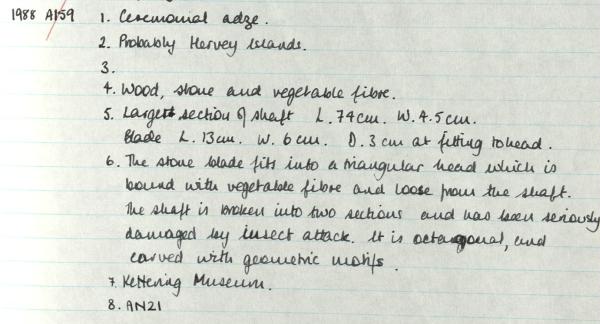 1988 A159 1. Ceremonial adze.
2. Probably Hervey Islands.
3.
4. Wood, stone and vegetable fibre.
5. Largest section of shaft L. 74cm. W. 4.5cm.
Blade L. 13cm. W. 6cm. D. 3cm at fitting to head.
6. The stone blade fits into a triangular head which is
bound with vegetable fibre and loose from the shaft.
The shaft is broken into two sections and has been seriously
damaged by insect attack. It is octagonal, and
carved with geometric motifs.
7. Kettering Museum.
8. AN21